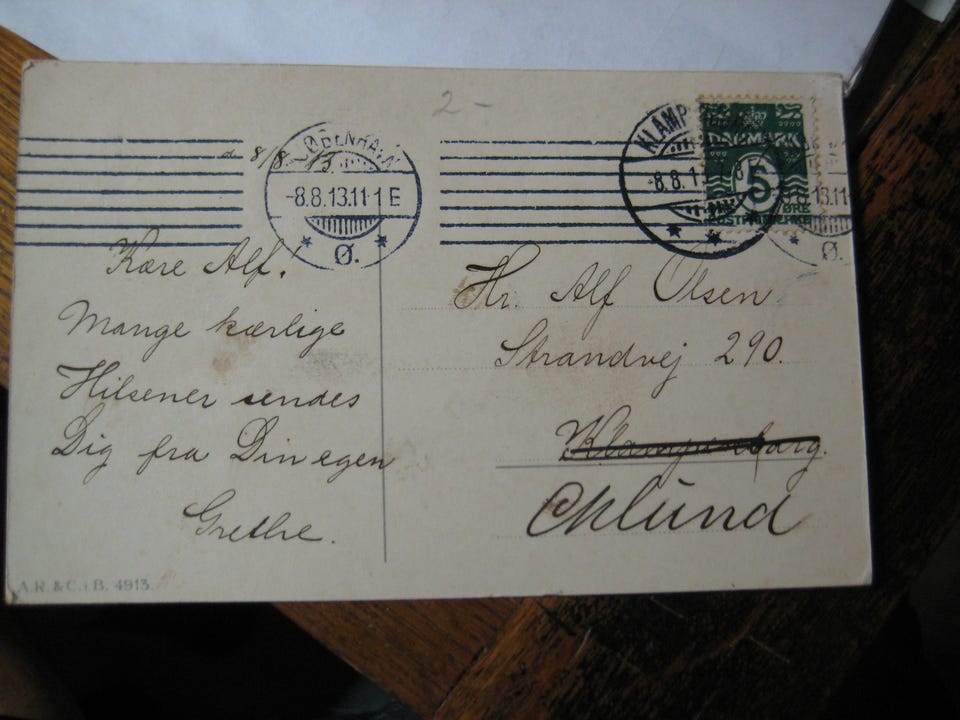 2-
d 8/8. 13.
KØBENHAVN
-8.8.13.11-1 E
Ø.
KLAMP
-8.8.1
DANMARK
5
ØRE
8.13.11-
Ø.
Kære Alf!
Mange kærlige
Hilsener sendes
Dig fra Din egen
Grethe.
Hr. Alf Olsen
Strandvej 290.
Klampenborg.
A.R. & C.i.B. 4913.